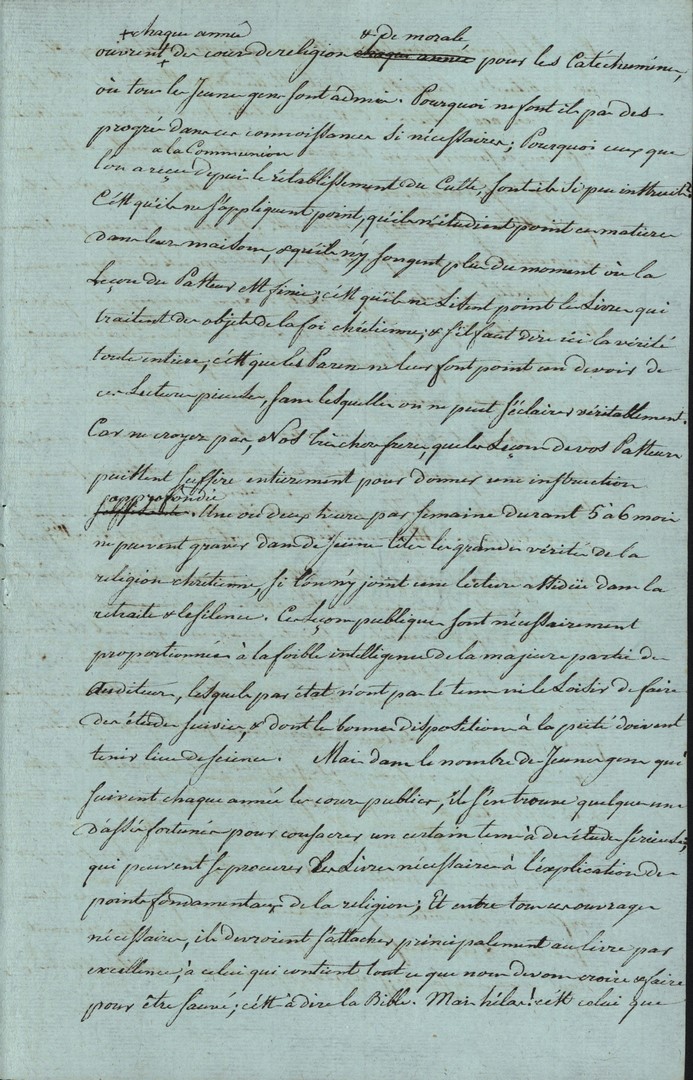 + chaque année & de morale
ouvrent + des cours de religion chaque année pour les Catéchumènes,
où tous les Jeunes gens sont admis. Pourquoi ne font ils pas des
progrès dans ces connoissances si nécessaires; Pourquoi ceux que
a la Communion
l'on a reçus depuis le rétablissement du Culte, sont ils si peu instruits?
C'est qu'ils ne s'appliquent point, qu'ils n'étudient point ces matieres
dans leurs maisons, & qu'ils n'y songent plus du moment où la
Leçon du Pasteur est finie; c'est qu'ils ne Lisent point les Livres qui
traitent des objets de la foi chrétienne; & s'il faut dire ici la vérité
toute entiere, c'est que les Parens ne leur font point un devoir de
ces Lectures pieuses, sans lesquelles on ne peut s'éclairer véritablement.
Car ne croyez pas, Nos très chers freres, que les Leçons de vos Pasteurs
puissent suffire entierement pour donner une instruction
approfondie
suffisante. Une ou deux heures par semaine durant 5 à 6 mois
ne peuvent graver dans de Jeunes têtes les grandes vérités de la
religion chrétienne, si l'on n'y joint une lecture assidüe dans la
retraite & le silence. Ces Leçons publiques sont nécessairement
proportionnées à la foible intelligence de la majeure partie des
Auditeurs, lesquels par état n'ont pas le tems ni le Loisir de faire
des études suivies, & dont les bonnes dispositions à la piété doivent
tenir lieu de science. Mais dans le nombre des Jeunes gens qui
suivent chaque année les cours publics, il s'en trouve quelques uns
d'assés fortunés pour consacrer un certain tems à des études sérieuses,
qui peuvent se procurer les Livres nécessaires à l'explication des
points fondamentaux de la religion; Et entre tous ces ouvrages
nécessaires, ils devroient s'attacher principalement au livre par
excellence, à celui qui contient tout ce que nous devons croire & faire
pour être sauvés; c'est à dire la Bible. Mais hélas! c'est celui que